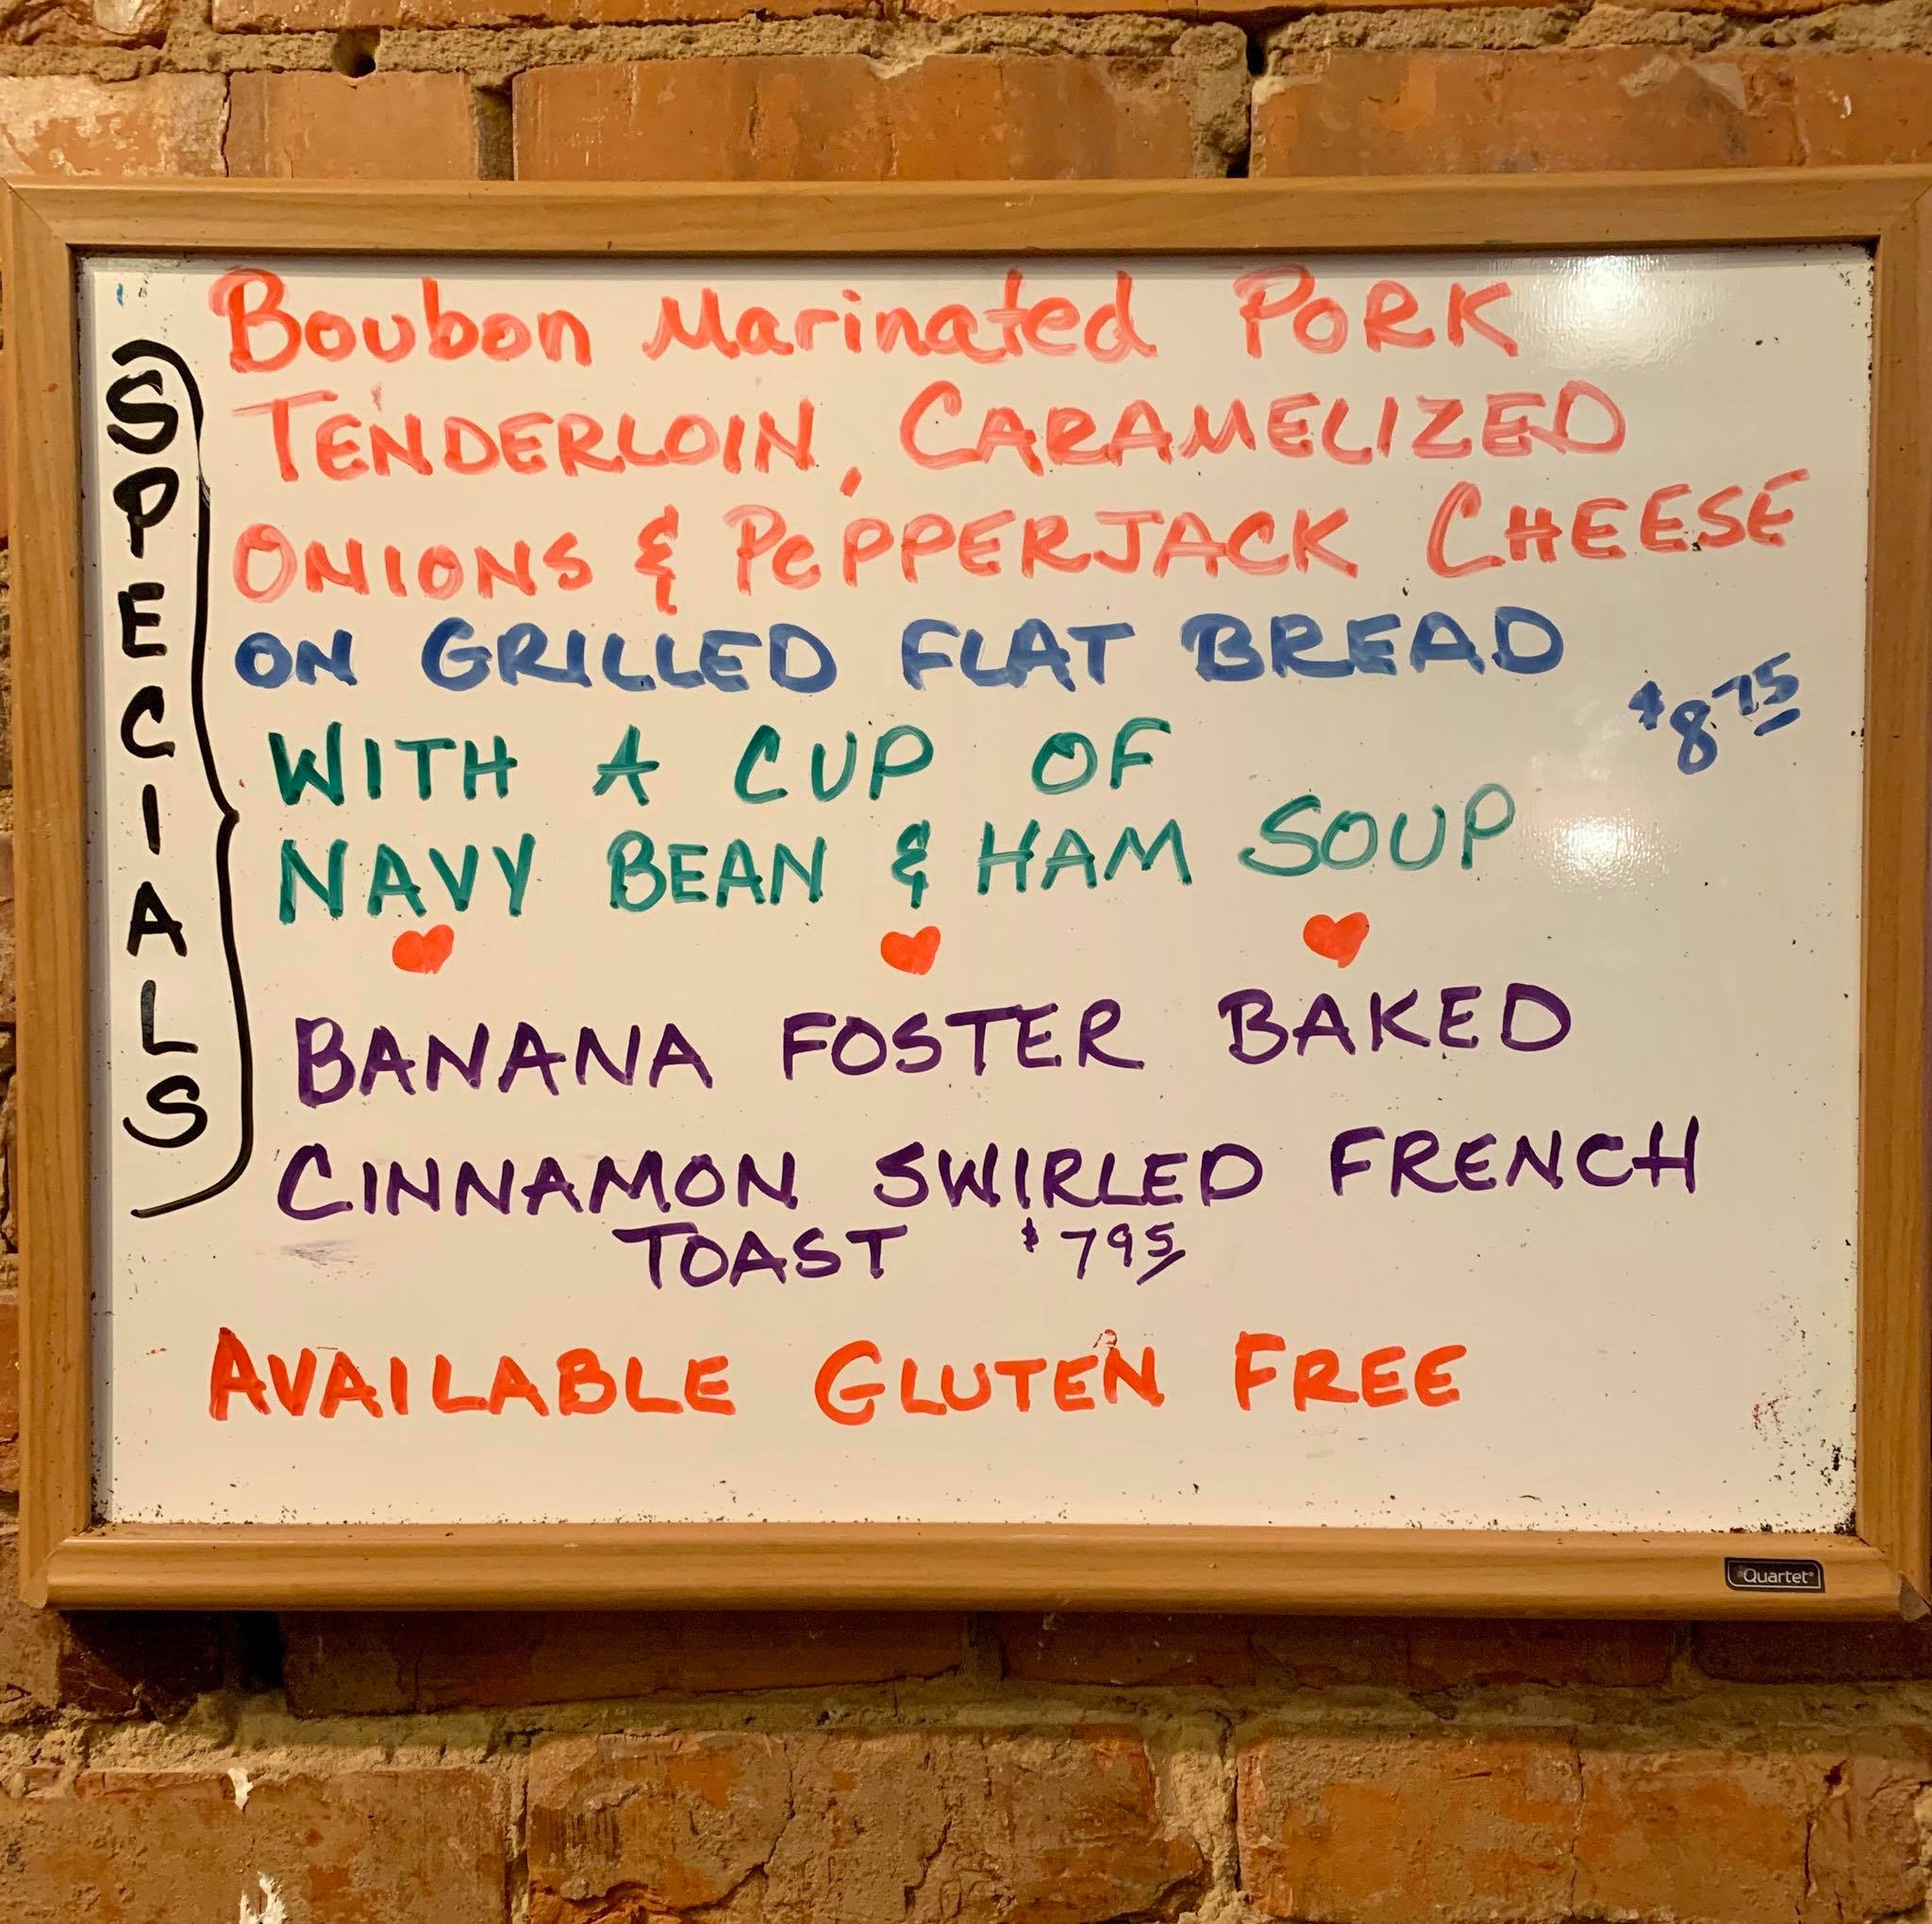 SPECIALS
Boubon Marinated PORK
TENDERLOIN, CARAMELIZED
ONIONS & PePPERJACK CHEESE
ON GRILLED FLAT BREAD
$8 75
WITH A CUP OF
NAVY BEAN & HAM SOUP
BANANA FOSTER BAKED
CINNAMON SWIRLED FRENCH
TOAST $795
AVAILABLE GLUTEN FREE
Quartet